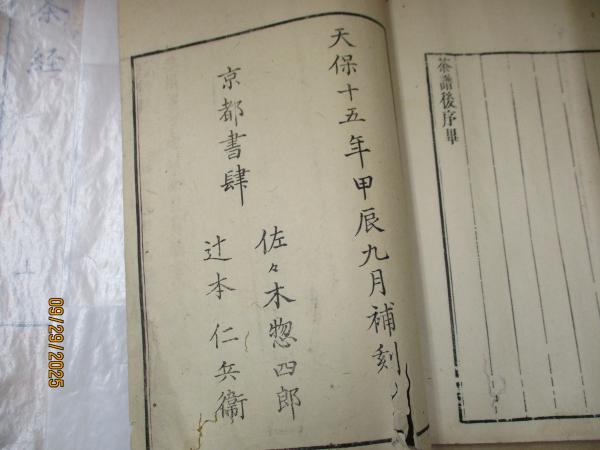 茶譜後序畢
天保十五年甲辰九月補刻
京都書肆
佐々木惣四郎
辻本仁兵衞
茶経
上
09/29/2025